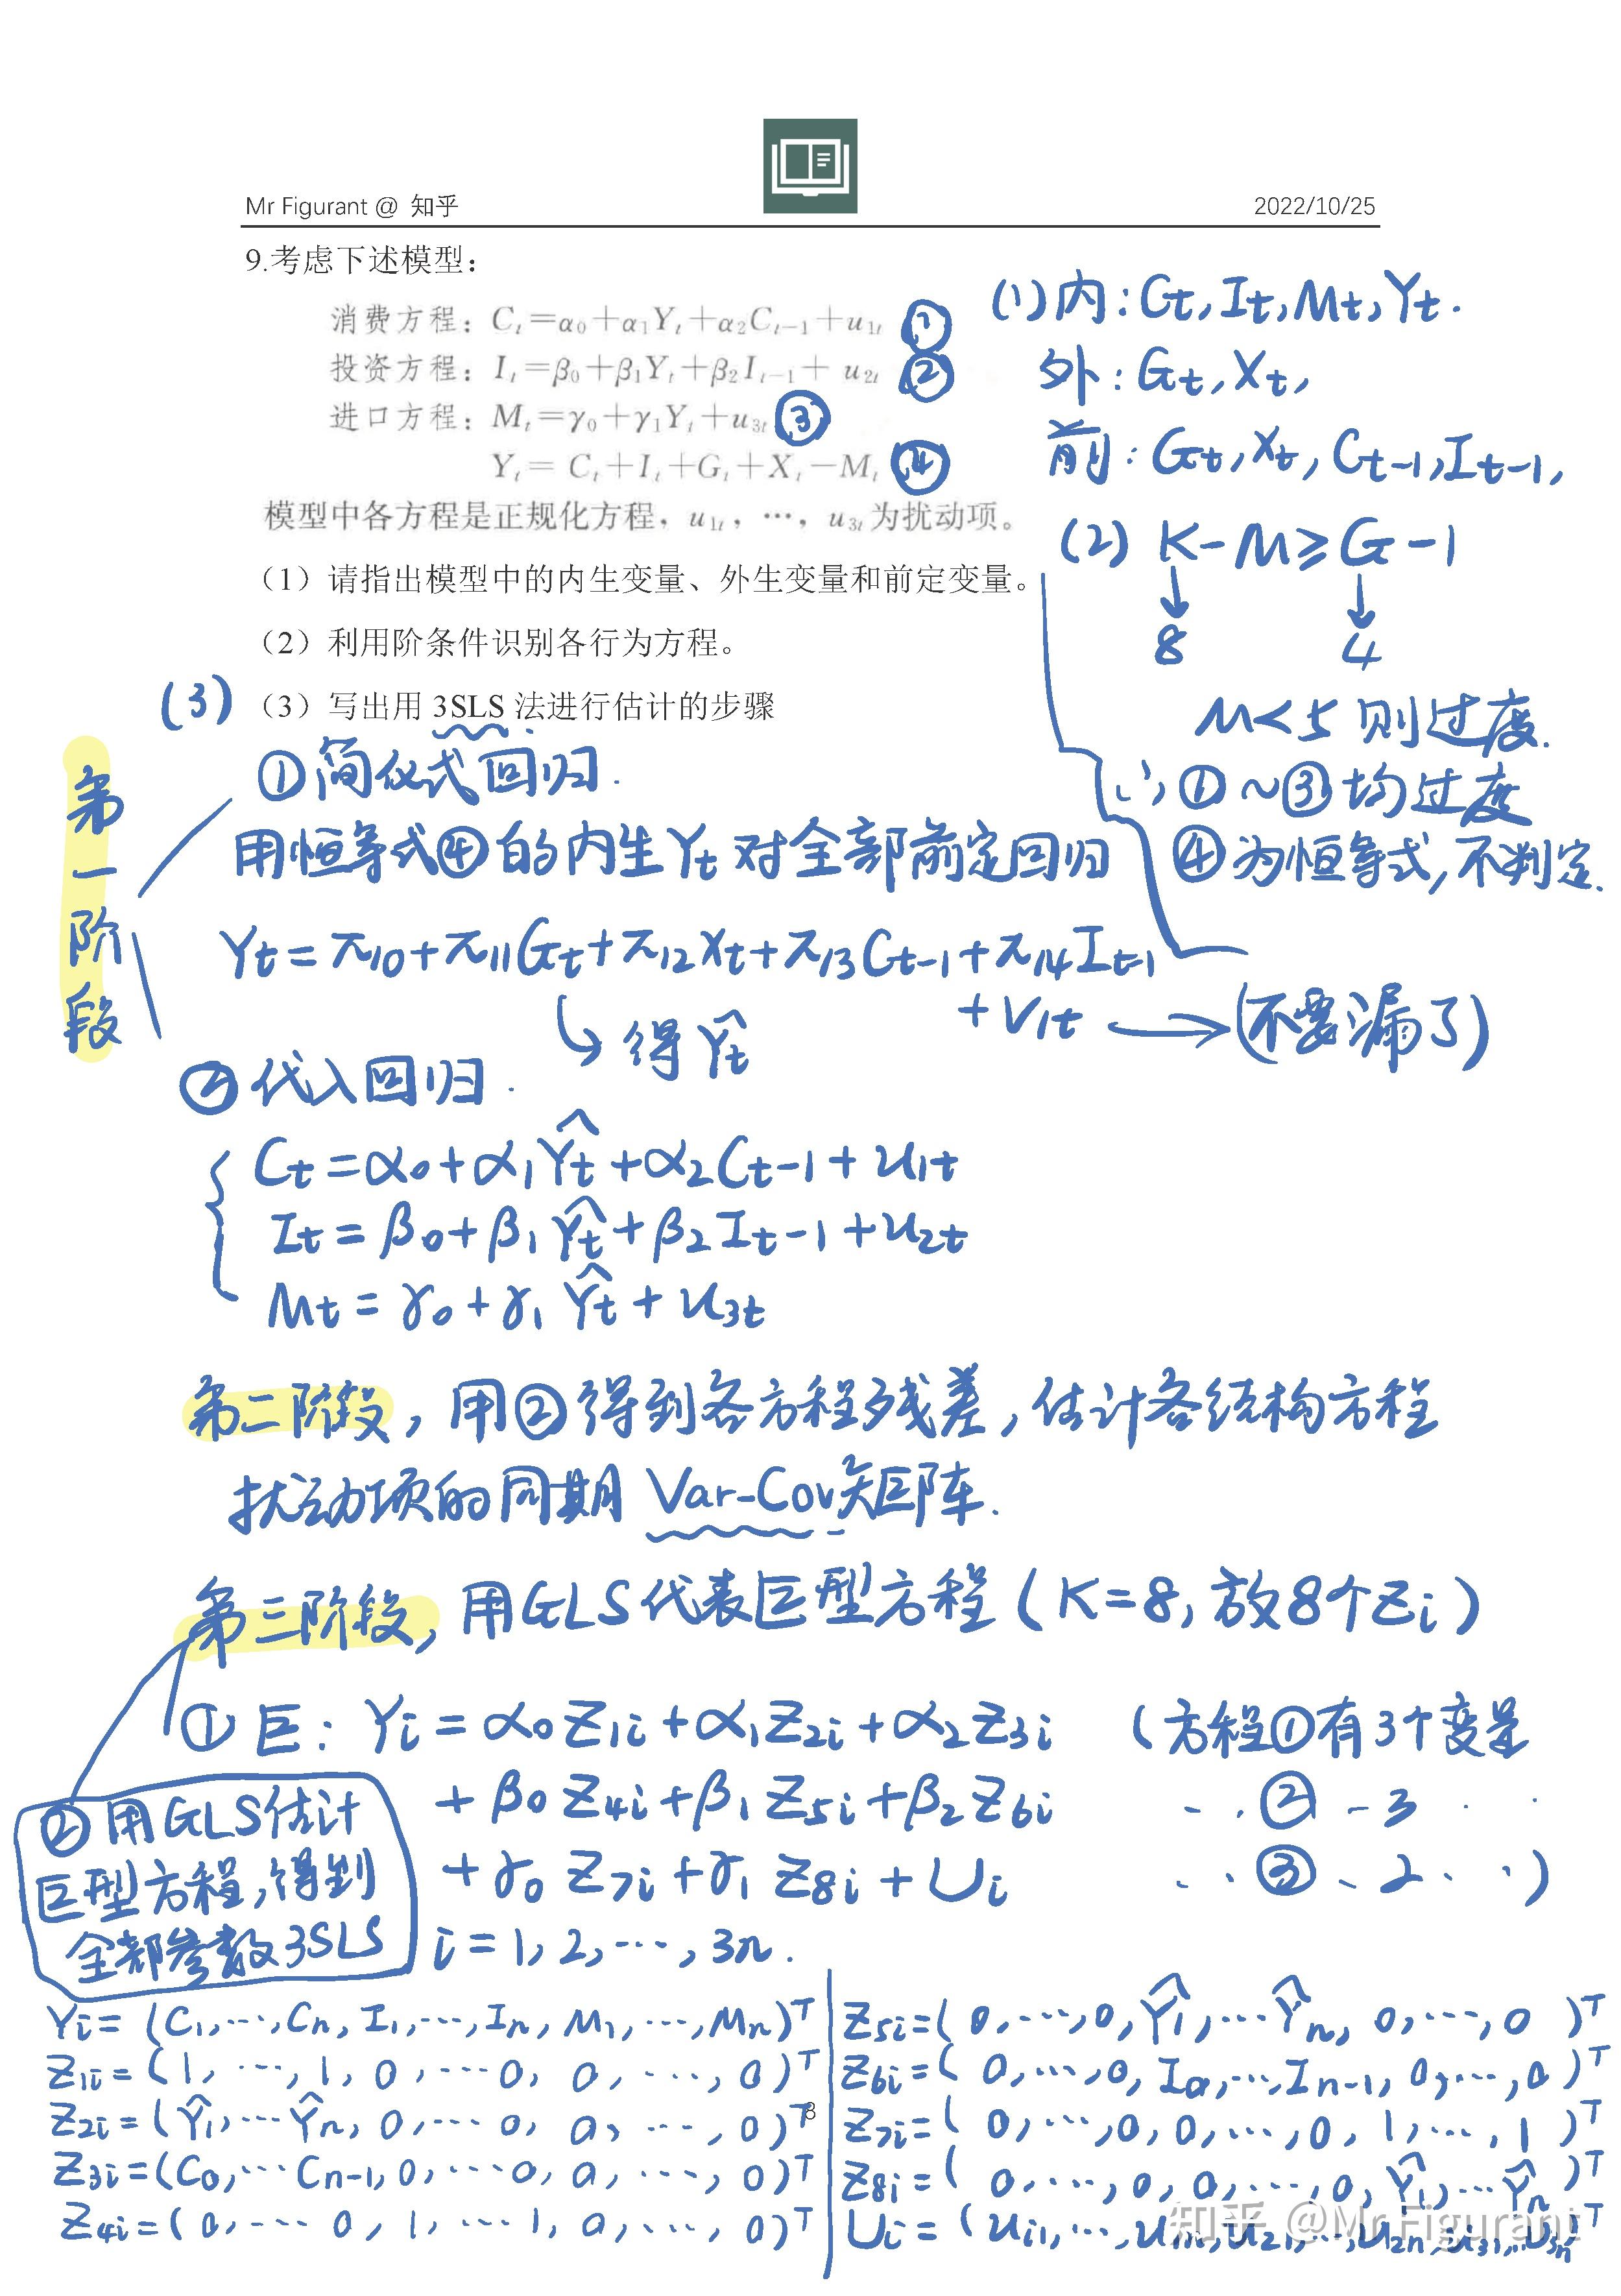 Mr Figurant @ 知乎
2022/10/25
9.考虑下述模型：
消费方程：Cₜ=α₀+α₁Yₜ+α₂Cₜ₋₁+u₁ₜ ①
投资方程：Iₜ=β₀+β₁Yₜ+β₂Iₜ₋₁+u₂ₜ ②
进口方程：Mₜ=γ₀+γ₁Yₜ+u₃ₜ ③
Yₜ=Cₜ+Iₜ+Gₜ+Xₜ-Mₜ ④
模型中各方程是正规化方程，u₁ₜ，…，u₃ₜ为扰动项。
（1）请指出模型中的内生变量、外生变量和前定变量。
（2）利用阶条件识别各行为方程。
（3）写出用 3SLS 法进行估计的步骤
(1)内：Ct, It, Mt, Yt.
外：Gt, Xt,
前：Gt, Xt, Ct-1, It-1,
(2) K-M≥G-1
↓ ↓
8 4
M<5 则过度.
∴①~③均过度
④为恒等式,不判定.
(3)
第一阶段
①简化式回归.
用恒等式④的内生Yt对全部前定回归
Yt=π10+π11Gt+π12Xt+π13Ct-1+π14It-1
+V1t → (不要漏了)
得Ŷt
②代入回归.
Ct=α0+α1Ŷt+α2Ct-1+u1t
It=β0+β1Ŷt+β2It-1+u2t
Mt=γ0+γ1Ŷt+u3t
第二阶段，用②得到各方程残差,估计各结构方程
扰动项的同期Var-Cov矩阵.
第三阶段,用GLS代表巨型方程(K=8,放8个Zi)
①巨：Yi=α0Z1i+α1Z2i+α2Z3i (方程①有3个变量
+β0Z4i+β1Z5i+β2Z6i ‥②-3‥
+γ0Z7i+γ1Z8i+Ui ‥③、2‥)
i=1,2,…,3n.
②用GLS估计
巨型方程,得到
全部参数3SLS
Yi=(C1,…,Cn,I1,…,In,M1,…,Mn)ᵀ
Z1i=(1,…,1,0,…0,0,…,0)ᵀ
Z2i=(Ŷ1,…Ŷn,0,…0,0,…,0)ᵀ
Z3i=(C0,…Cn-1,0,…0,0,…,0)ᵀ
Z4i=(0,…0,1,…1,0,…,0)ᵀ
Z5i=(0,…,0,Ŷ1,…Ŷn,0,…,0)ᵀ
Z6i=(0,…,0,I0,…,In-1,0,…,0)ᵀ
Z7i=(0,…,0,0,…,0,1,…,1)ᵀ
Z8i=(0,…,0,0,…,0,Ŷ1,…Ŷn)ᵀ
Ui=(u11,…,u1n,u21,…,u2n,u31,…u3n)ᵀ
8
知乎 @Mr Figurant